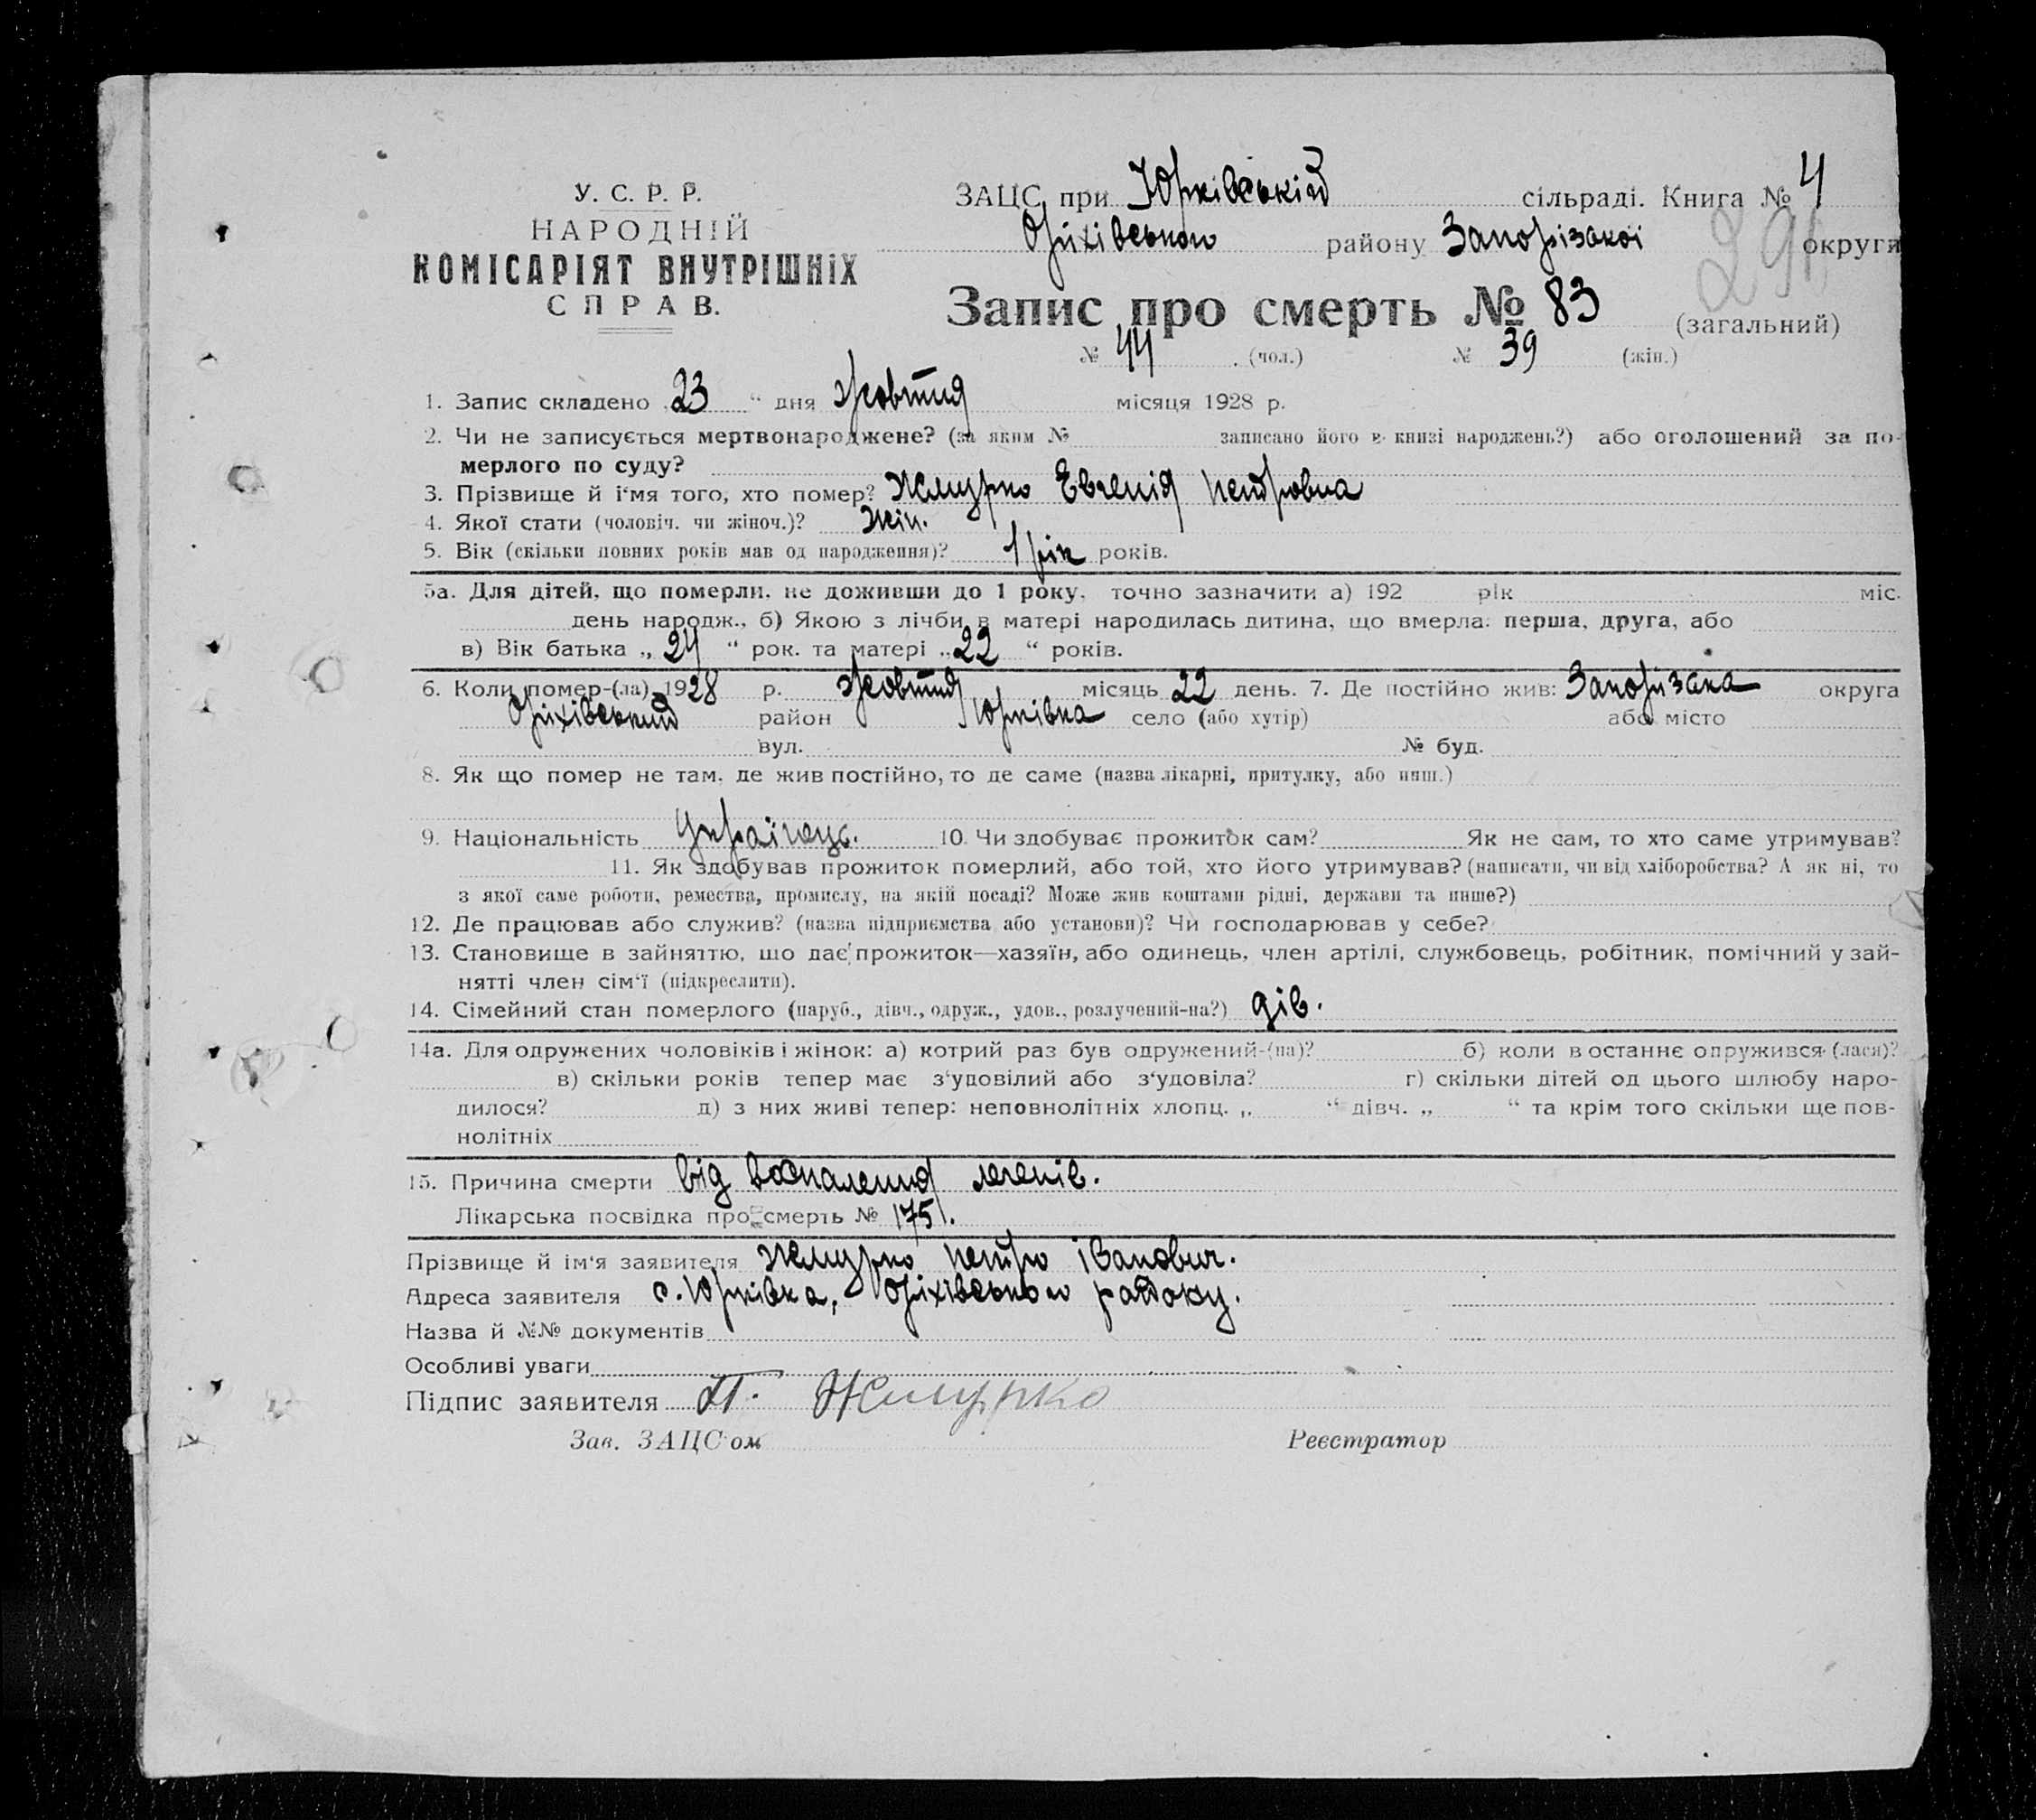 У. С. Р. Р.
НАРОДНІЙ
КОМІСАРІЯТ ВНУТРІШНІХ
СПРАВ.
ЗАЦС при Юрківській сільраді. Книга № 4
Оріхівського району Запорізької округи
291
Запис про смерть № 83 (загальний)
№ 44 (чол.) № 39 (жін.)
1. Запис складено „23“ дня жовтня місяця 1928 р.
2. Чи не записується мертвонароджене? (за яким № записано його в книзі народжень?) або оголошений за по-
мерлого по суду?
3. Прізвище й і‘мя того, хто помер? Жмурко Евгенія Петровна
4. Якої стати (чоловіч. чи жіноч.)? жін.
5. Вік (скільки повних років мав од народження)? 1 рік років.
5а. Для дітей, що померли, не доживши до 1 року, точно зазначити а) 192 рік міс.
день народж., б) Якою з лічби в матері народилась дитина, що вмерла: перша, друга, або
в) Вік батька „ 24 “ рок. та матері „ 22 “ років.
6. Коли помер-(ла) 1928 р. жовтня місяць 22 день. 7. Де постійно жив: Запорізька округа
Оріхівський район Юрківка село (або хутір) або місто
вул. № буд.
8. Як що помер не там, де жив постійно, то де саме (назва лікарні, притулку, або инш.)
9. Національність Українець. 10. Чи здобуває прожиток сам? Як не сам, то хто саме утримував?
11. Як здобував прожиток померлий, або той, хто його утримував? (написати, чи від хліборобства? А як ні, то
з якої саме роботи, ремества, промислу, на якій посаді? Може жив коштами рідні, держави та инше?)
12. Де працював або служив? (назва підприємства або установи)? Чи господарював у себе?
13. Становище в зайняттю, що дає прожиток—хазяїн, або одинець, член артілі, службовець, робітник, помічний у зай-
нятті член сім‘ї (підкреслити).
14. Сімейний стан померлого (паруб., дівч., одруж., удов., розлучений-на?) дів.
14а. Для одружених чоловіків і жінок: а) котрий раз був одружений-(на)? б) коли в останнє одружився (лася)?
в) скільки років тепер має з‘удовілий або з‘удовіла? г) скільки дітей од цього шлюбу наро-
дилося? д) з них живі тепер: неповнолітніх хлопц. „ “ дівч. „ “ та крім того скільки ще пов-
нолітніх
15. Причина смерти від воспалення легенів.
Лікарська посвідка про смерть № 1751.
Прізвище й ім‘я заявителя Жмурко Петро Іванович.
Адреса заявителя с. Юрківка, Оріхівського району.
Назва й №№ документів
Особливі уваги
Підпис заявителя П. Жмурко
Зав. ЗАЦС‘ом Реєстратор